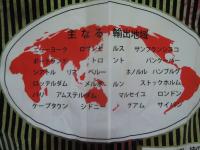 主なる 輸出地域
ニューヨーク ロサンゼルス サンフランシスコ
ポートランド トロント バンクーバー
シアトル ホノルル ハンブルグ
ロッテルダム メルボルン ストックホルム
パリ アムステルダム マルセイユ ロンドン
ケープタウン シドニー グアム サイパン